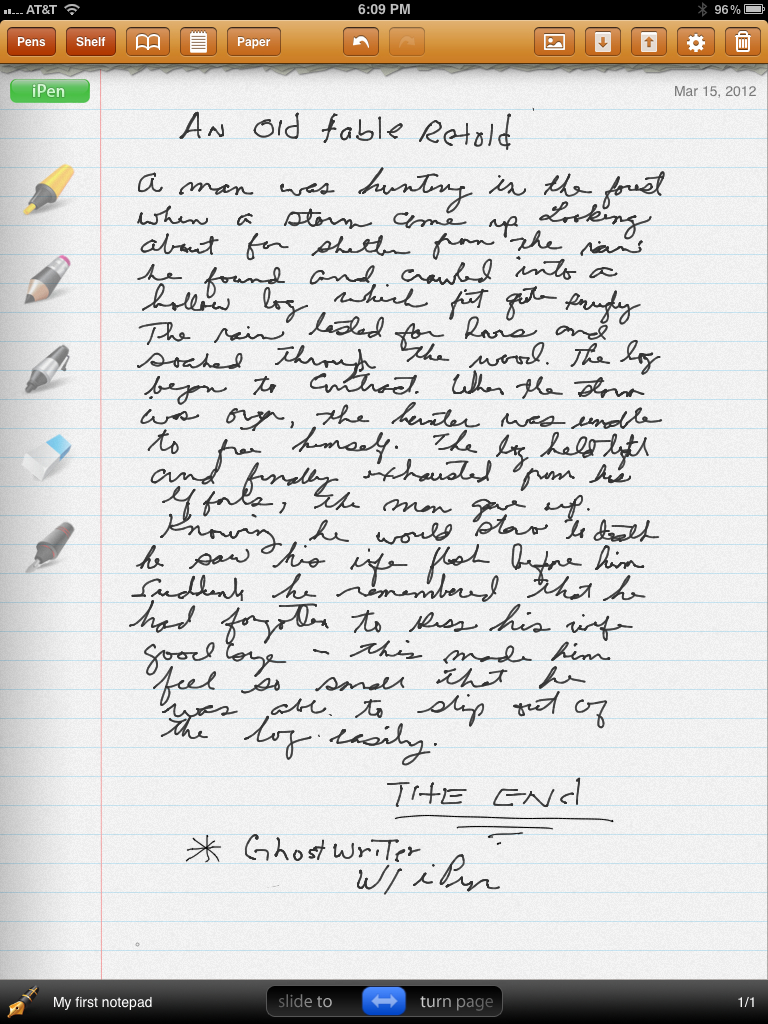 AT&T 6:09 PM 96%
Pens Shelf Paper
iPen
Mar 15, 2012
An Old Fable Retold
A man was hunting in the forest
when a storm came up Looking
about for shelter from the rain
he found and crawled into a
hollow log which fit quite snugly
The rain lasted for hours and
soaked through the wood. The log
began to contract. When the storm
was over, the hunter was unable
to free himself. The log held tight
and finally exhausted from his
efforts, the man gave up.
Knowing he would starve to death
he saw his life flash before him
Suddenly he remembered that he
had forgotten to kiss his wife
good bye - this made him
feel so small that he
was able to slip out of
the log easily.
THE END
* GhostWriter
W/ iPen
My first notepad
slide to turn page
1/1